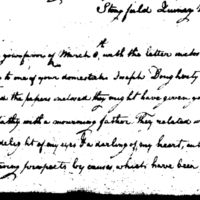 Stony field Quincy
your favor of March 6th, with the letter
to one of your domesticks Joseph Dougherty
the papers inclosed they might have given you
pathy with a mourning father. They related
delight of my eyes & a darling of my heart,
prospects by causes which have been